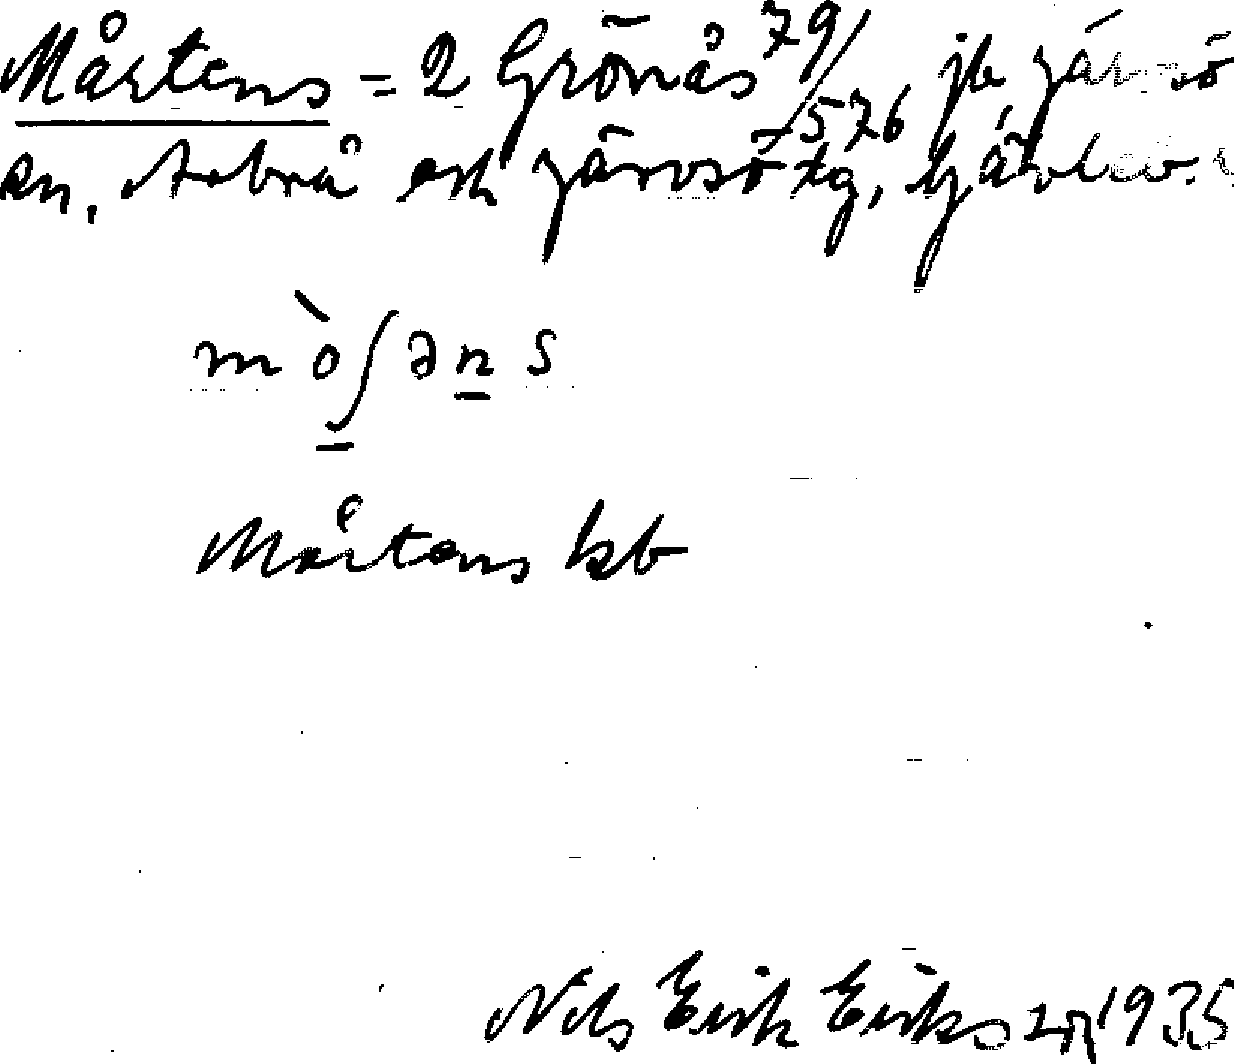 Mårtens = 2 Grönås 79/576 jb, Järvsö
sn, Arbrå och Järvsö tg, Gävleb.
m ò ʃ ə n s
Mårtens kb
Nils Erik Eriks 1935